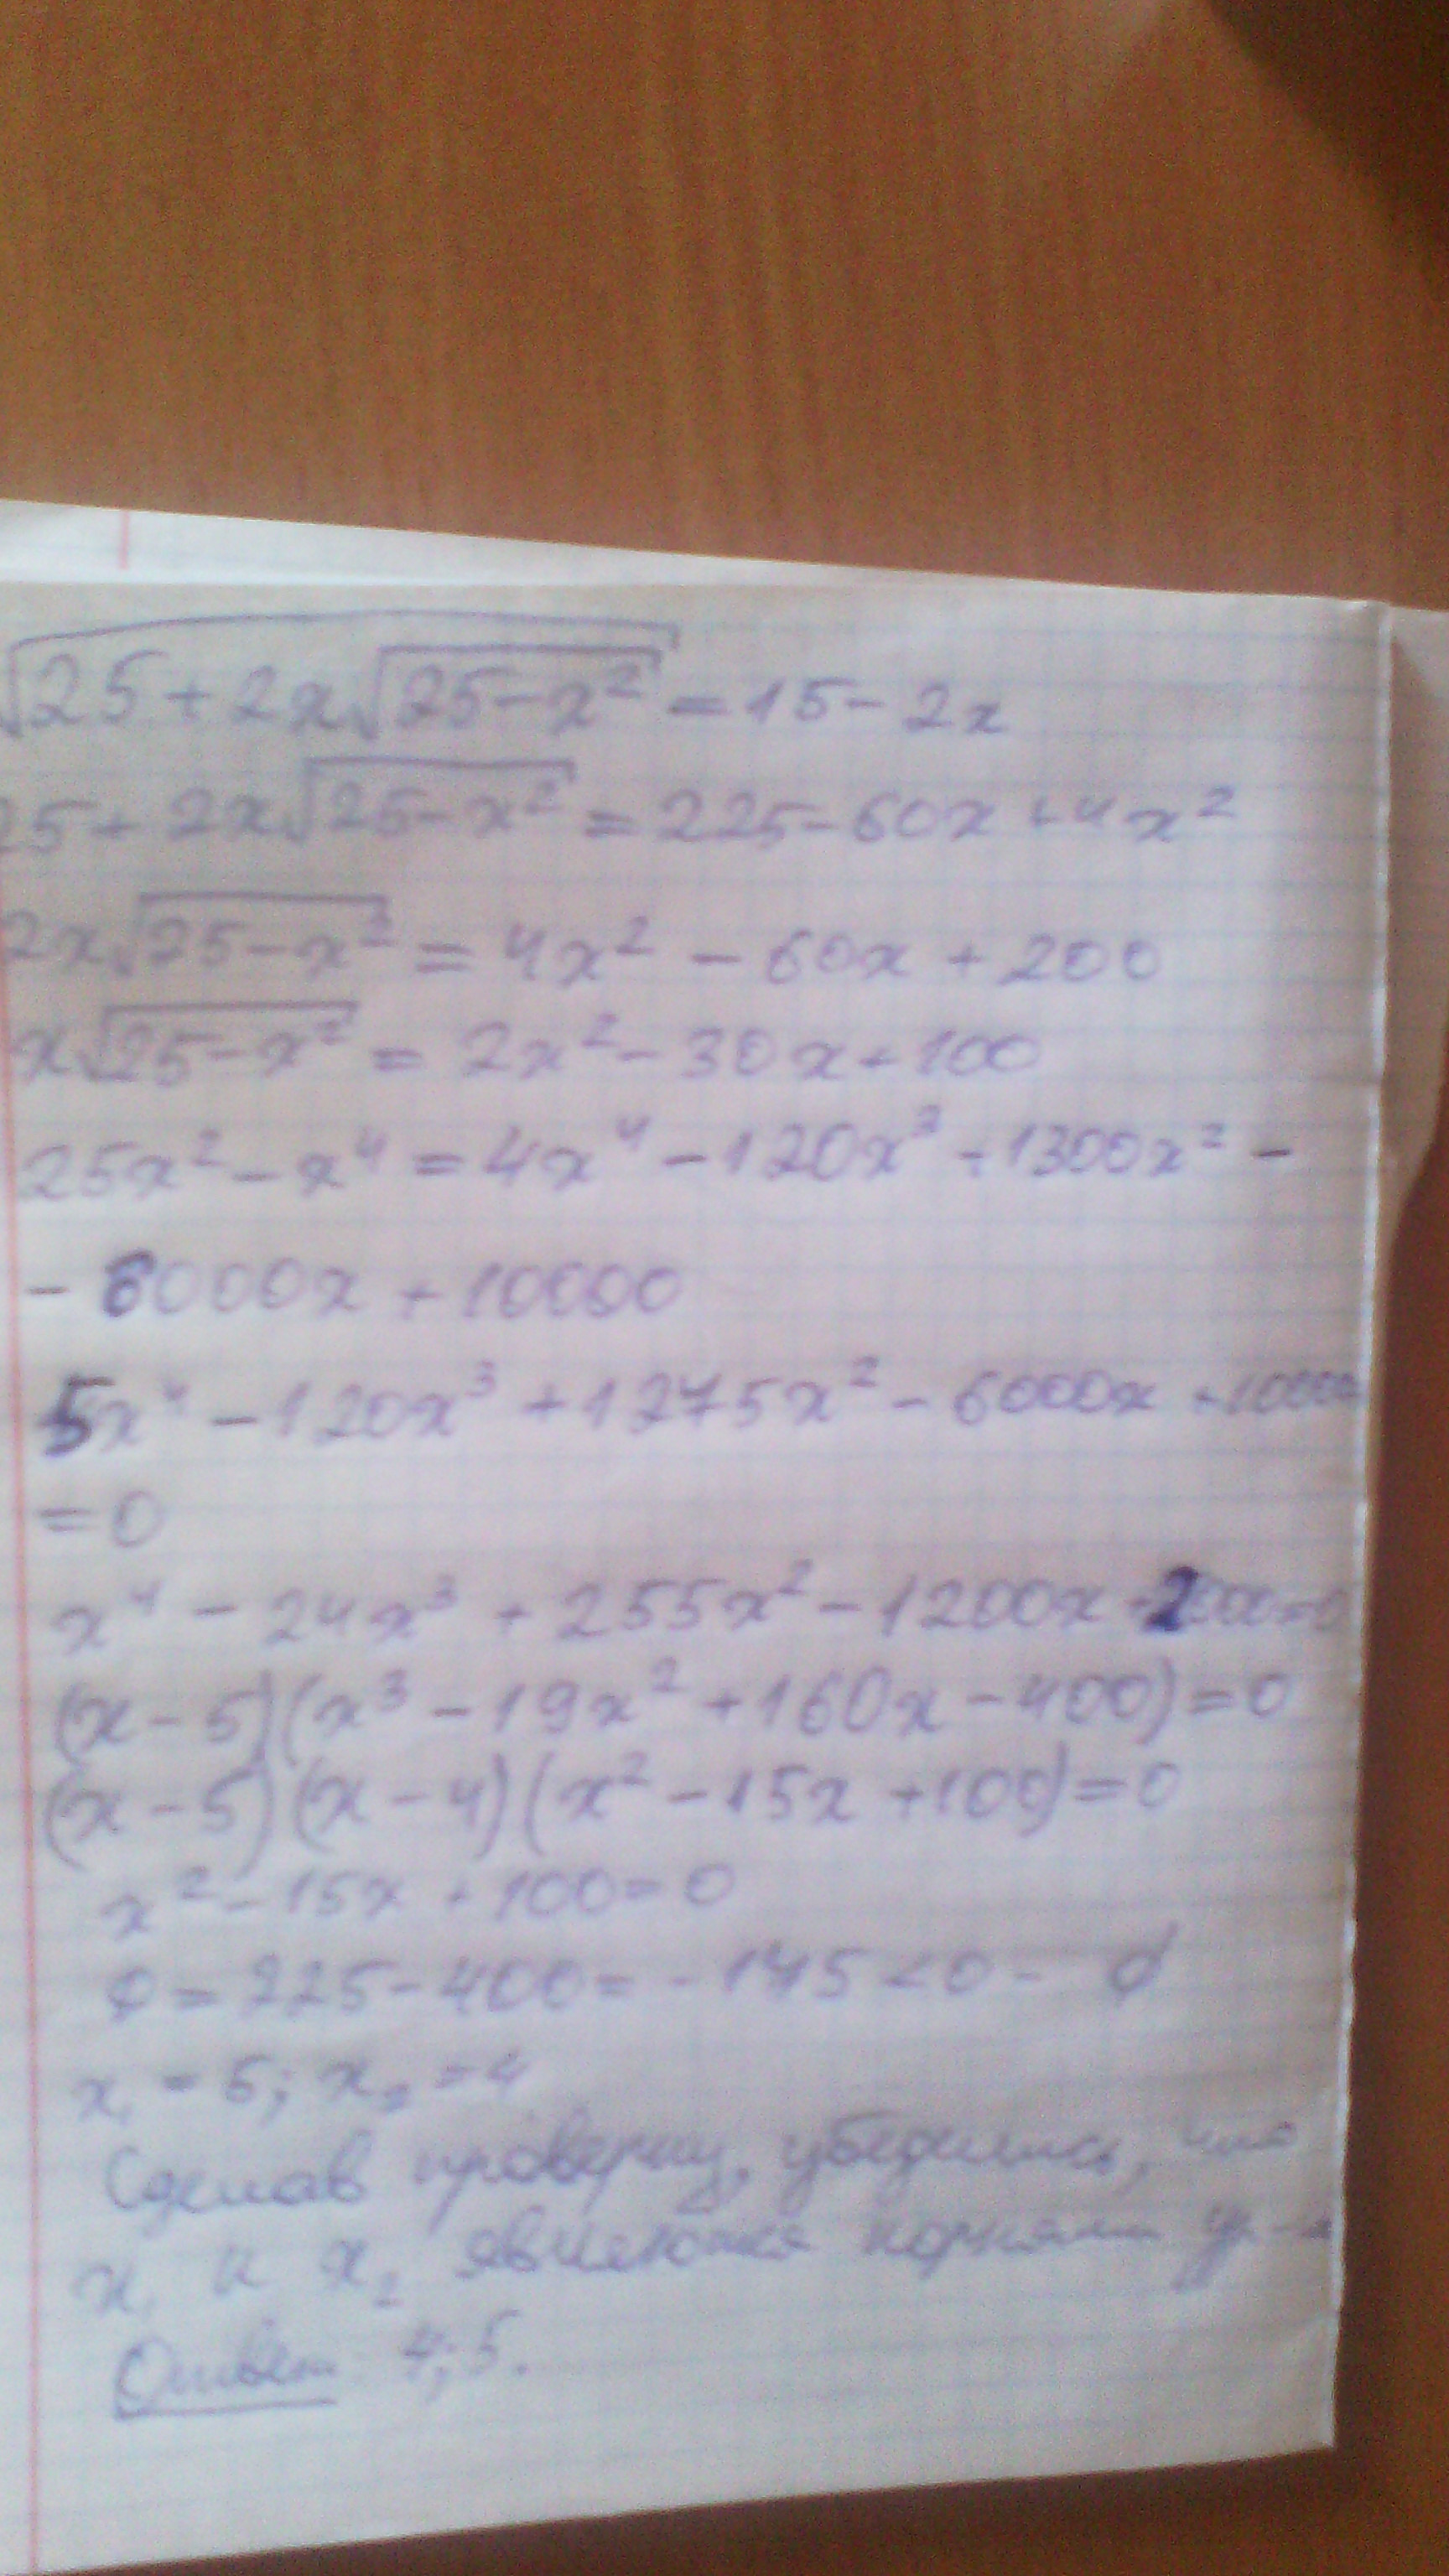 √(25+2x√(25-x²)) = 15-2x
25+2x√(25-x²) = 225-60x+4x²
2x√(25-x²) = 4x² - 60x + 200
x√(25-x²) = 2x² - 30x + 100
25x² - x⁴ = 4x⁴ - 120x³ + 1300x² -
- 6000x + 10000
5x⁴ - 120x³ + 1275x² - 6000x + 10000
=0
x⁴ - 24x³ + 255x² - 1200x + 2000=0
(x-5)(x³-19x²+160x-400)=0
(x-5)(x-4)(x²-15x+100)=0
x²-15x+100=0
D=225-400=-175<0 - ∅
x₁=5; x₂=4
Сделав проверку, убедились, что
x₁ и x₂ являются корнями ур-я
Ответ 4;5.